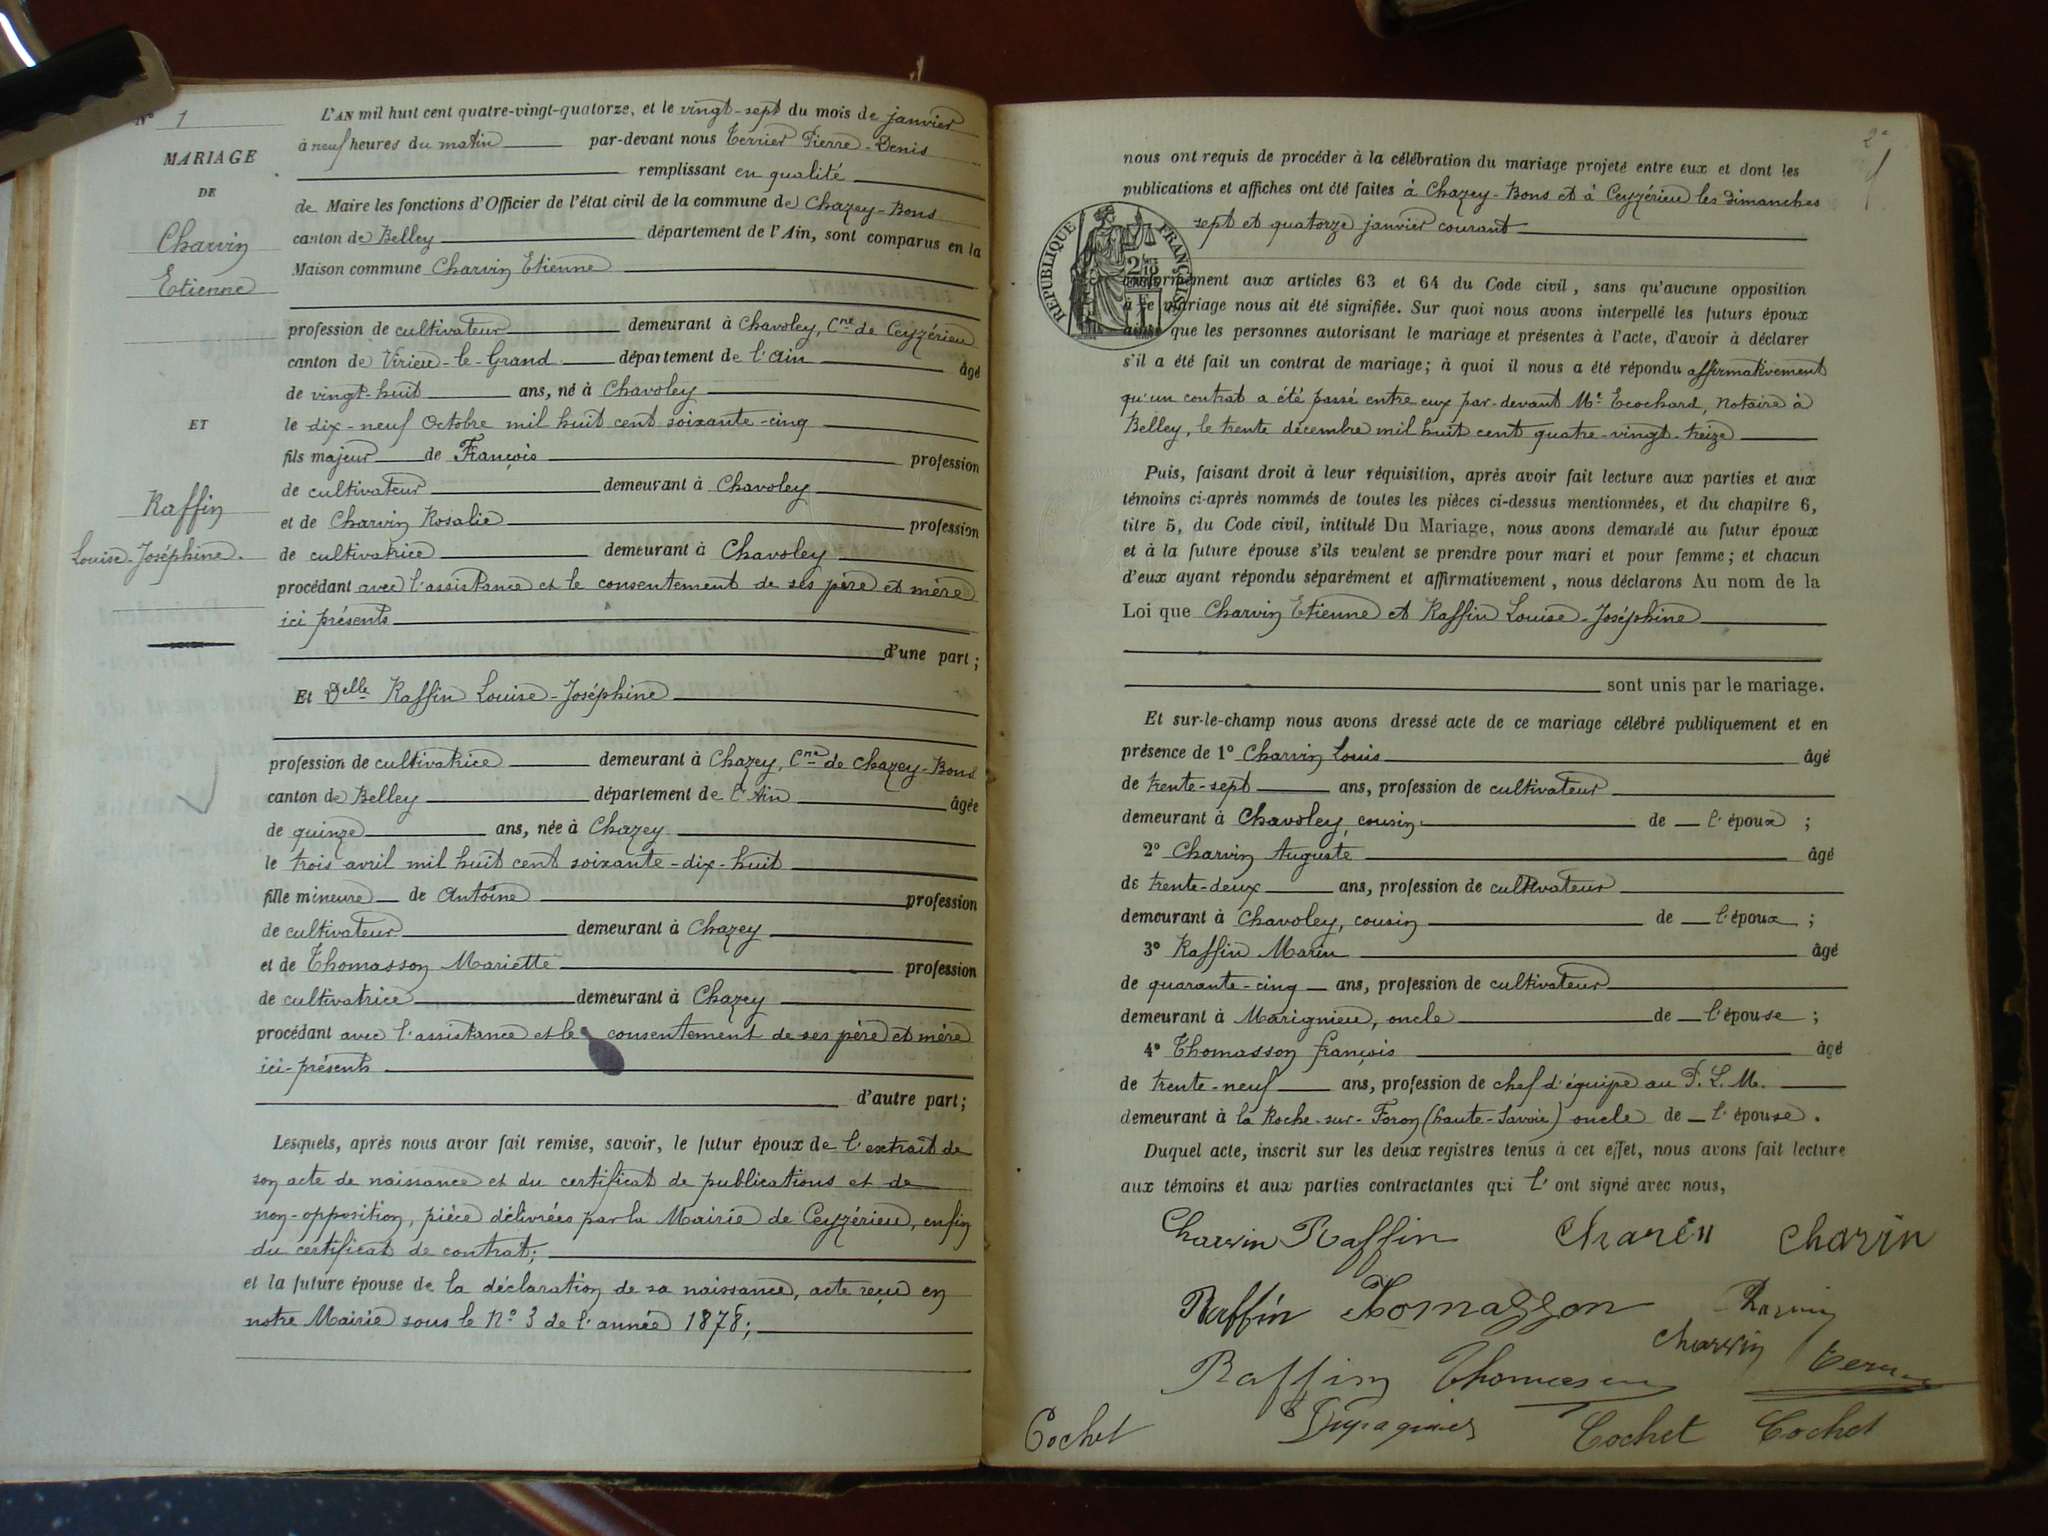 N° 1
MARIAGE
DE
Charvin
Etienne
ET
Raffin
Louise-Joséphine.
L'AN mil huit cent quatre-vingt-quatorze, et le vingt-sept du mois de janvier
à neuf heures du matin par-devant nous Terrier Pierre-Denis
remplissant en qualité
de Maire les fonctions d'Officier de l'état civil de la commune de Chazey-Bons
canton de Belley département de l'Ain, sont comparus en la
Maison commune Charvin Etienne
profession de cultivateur demeurant à Chavoley, Cne de Ceyzérieu
canton de Virieu-le-Grand département de l'Ain âgé
de vingt-huit ans, né à Chavoley
le dix-neuf Octobre mil huit cent soixante-cinq
fils majeur de François profession
de cultivateur demeurant à Chavoley
et de Charvin Rosalie profession
de cultivatrice demeurant à Chavoley
procédant avec l'assistance et le consentement de ses père et mère
ici présents
d'une part;
Et Delle Raffin Louise-Joséphine
profession de cultivatrice demeurant à Chazey, Cne de Chazey-Bons
canton de Belley département de l'Ain âgée
de quinze ans, née à Chazey
le trois avril mil huit cent soixante-dix-huit
fille mineure de Antoine profession
de cultivateur demeurant à Chazey
et de Thomasson Mariette profession
de cultivatrice demeurant à Chazey
procédant avec l'assistance et le consentement de ses père et mère
ici-présents
d'autre part;
Lesquels, après nous avoir fait remise, savoir, le futur époux de l'extrait de
son acte de naissance et du certificat de publications et de
non-opposition, pièce délivrées par la Mairie de Ceyzérieu, enfin
du certificat de contrat;
et la future épouse de la déclaration de sa naissance, acte reçu en
notre Mairie sous le N° 3 de l'année 1878;
2e
nous ont requis de procéder à la célébration du mariage projeté entre eux et dont les
publications et affiches ont été faites à Chazey-Bons et à Ceyzérieu les dimanches
sept et quatorze janvier courant
RÉPUBLIQUE FRANÇAISE
conformément aux articles 63 et 64 du Code civil, sans qu'aucune opposition
à ce mariage nous ait été signifiée. Sur quoi nous avons interpellé les futurs époux
ainsi que les personnes autorisant le mariage et présentes à l'acte, d'avoir à déclarer
s'il a été fait un contrat de mariage; à quoi il nous a été répondu affirmativement
qu'un contrat a été passé entre eux par-devant Me Ecochard, Notaire à
Belley, le trente décembre mil huit cent quatre-vingt-treize
Puis, faisant droit à leur réquisition, après avoir fait lecture aux parties et aux
témoins ci-après nommés de toutes les pièces ci-dessus mentionnées, et du chapitre 6,
titre 5, du Code civil, intitulé Du Mariage, nous avons demandé au futur époux
et à la future épouse s'ils veulent se prendre pour mari et pour femme; et chacun
d'eux ayant répondu séparément et affirmativement, nous déclarons Au nom de la
Loi que Charvin Etienne et Raffin Louise-Joséphine
sont unis par le mariage.
Et sur-le-champ nous avons dressé acte de ce mariage célébré publiquement et en
présence de 1° Charvin Louis âgé
de trente-sept ans, profession de cultivateur
demeurant à Chavoley, cousin de l'époux;
2° Charvin Auguste âgé
de trente-deux ans, profession de cultivateur
demeurant à Chavoley, cousin de l'époux;
3° Raffin Marin âgé
de quarante-cinq ans, profession de cultivateur
demeurant à Marignieu, oncle de l'épouse;
4° Thomasson françois âgé
de trente-neuf ans, profession de chef d'équipe au P. L. M.
demeurant à la Roche-sur-Foron (haute-Savoie) oncle de l'épouse.
Duquel acte, inscrit sur les deux registres tenus à cet effet, nous avons fait lecture
aux témoins et aux parties contractantes qui l'ont signé avec nous,
Charvin Raffin Charvin
Raffin
Charvin
Raffin Thomasson
Cochet Cochet Cochet